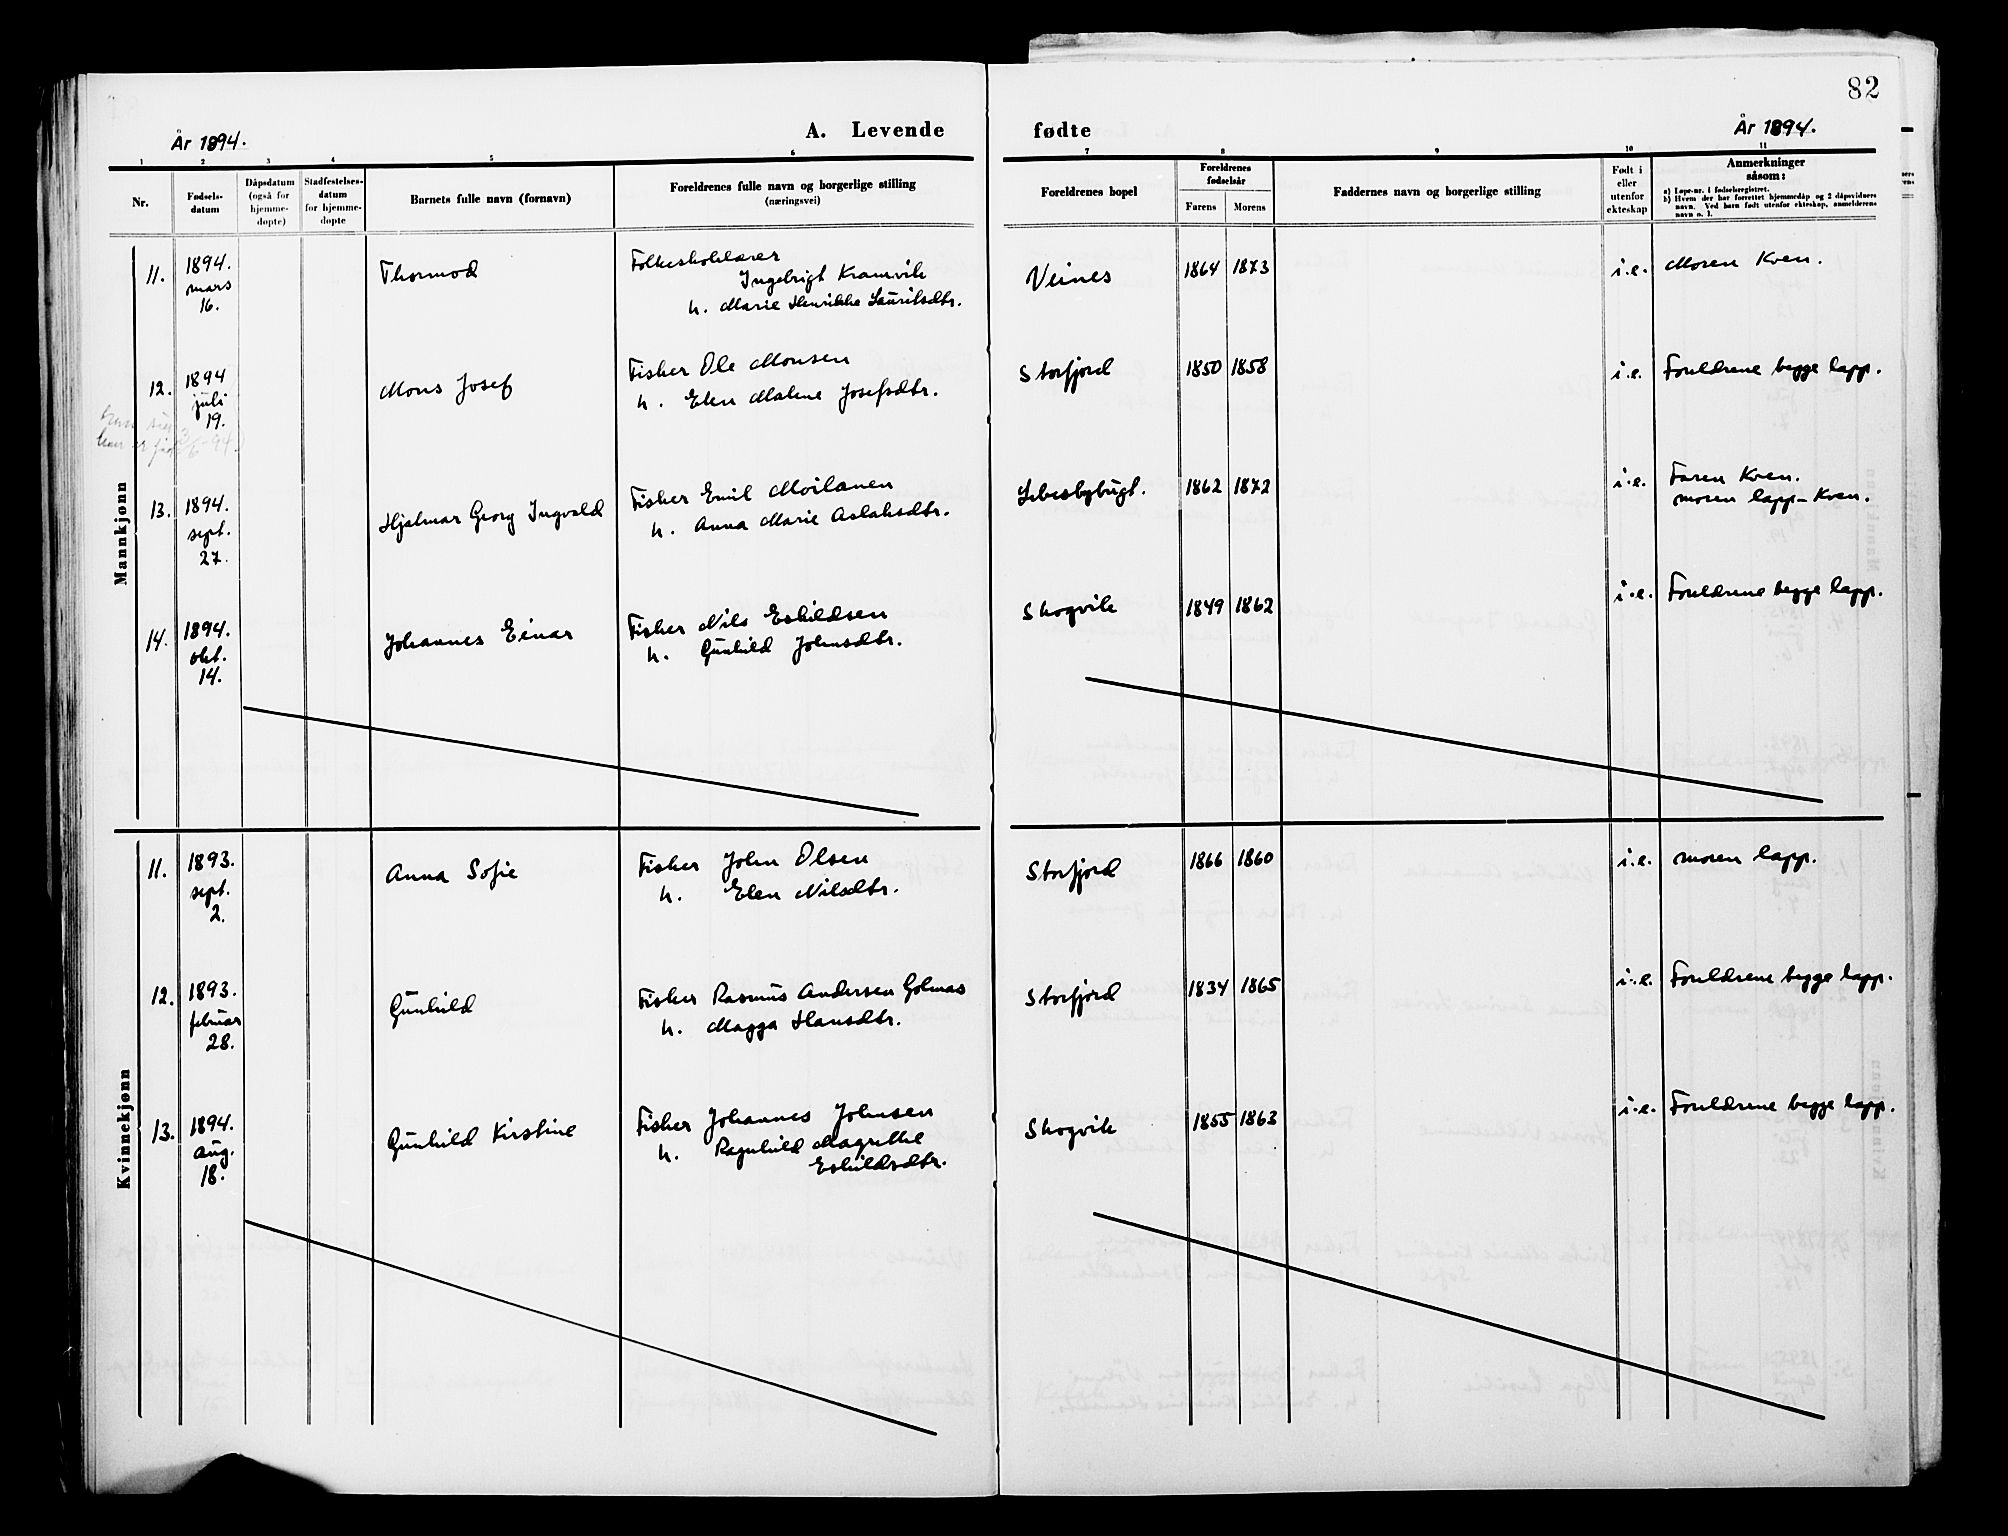 82
År 1894.
A. Levende fødte
År 1894.
1 2 3 4 5 6 7 8 9 10 11
Nr.
Fødsels-
datum
Dåpsdatum
(også for
hjemme-
døpte)
Stadfestelses-
datum
for hjemme-
døpte
Barnets fulle navn (fornavn)
Foreldrenes fulle navn og borgerlige stilling
(næringsvei)
Foreldrenes bopel
Foreldrenes
fødselsår
Farens Morens
Faddernes navn og borgerlige stilling
Født i
eller
utenfor
ekteskap
Anmerkninger
såsom:
a) Løpe-nr. i fødselsregistret.
b) Hvem der har forrettet hjemmedåp og 2 dåpsvidners
navn. Ved barn født utenfor ekteskap, anmelderens
navn o. l.
Mannkjønn
11. 1894. mars 16. Thormod Folkeskolelærer Veines 1864 1873 i.e. Moren Kven.
Ingebrigt Kramvik
h. Marie Henrikke Lauritsdtr.
12. 1894 juli 19. Mons Josef Fisker Ole Monsen Storfjord 1850 1858 i.e. Foreldrene begge lapp.
h. Elen Malene Josefsdtr.
han er født 3/6-94)
13. 1894. sept. 27. Hjalmar Georg Ingvald Fisker Emil Moilanen Lebesbybugt. 1862 1872 i.e. Faren Kven.
h. Anna Marie Aslaksdtr. moren lapp-Kven.
14. 1894. okt. 14. Johannes Einar Fisker Nils Eskildsen Skogvik 1849 1862 i.e. Foreldrene begge lapp.
h. Gunhild Johnsdtr.
Kvinnekjønn
11. 1893. sept. 2. Anna Sofie Fisker John Olsen Storfjord 1866 1860 i.e. moren lapp.
h. Elen Nilsdtr.
12. 1893. februar 28. Gunhild Fisker Rasmus Andersen Golmas Storfjord 1834 1865 i.e. Foreldrene begge lapp.
h. Magga Hansdtr.
13. 1894. aug. 18. Gunhild Kirstine Fisker Johannes Johnsen Skogvik 1855 1863 i.e. Foreldrene begge lapp.
h. Ragnhild Magrethe
Eskildsdtr.